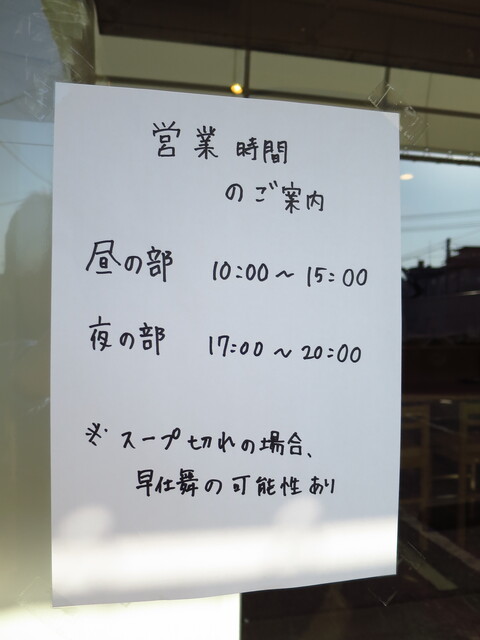 営業時間
のご案内
昼の部 10:00～15:00
夜の部 17:00～20:00
※スープ切れの場合、
早仕舞の可能性あり